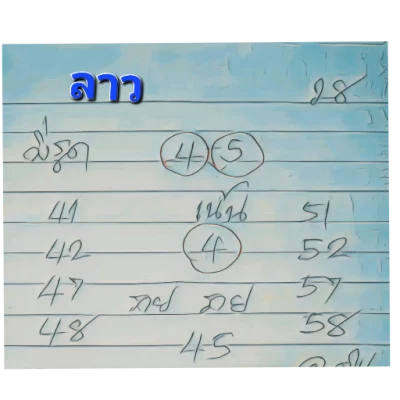 ลาว
28
มีรูด 4 5
41 เน้น 51
42 4 52
47 57
48 45 58